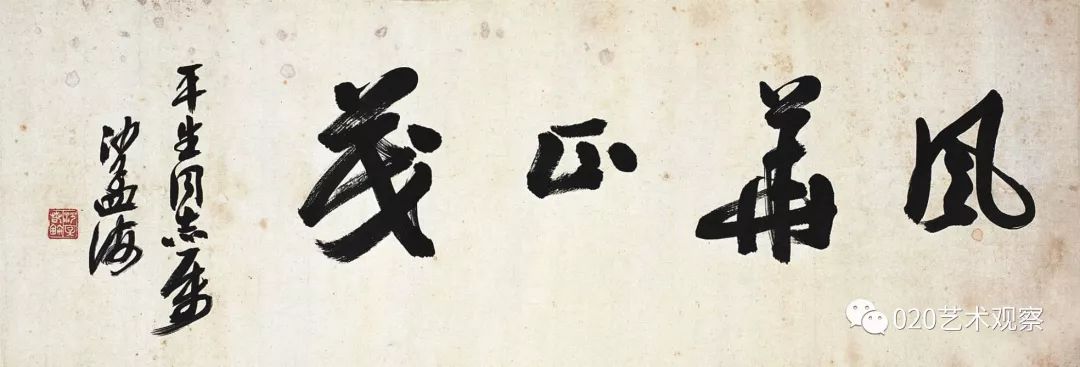 風華正茂
平生同志屬
沙孟海
020艺术观察